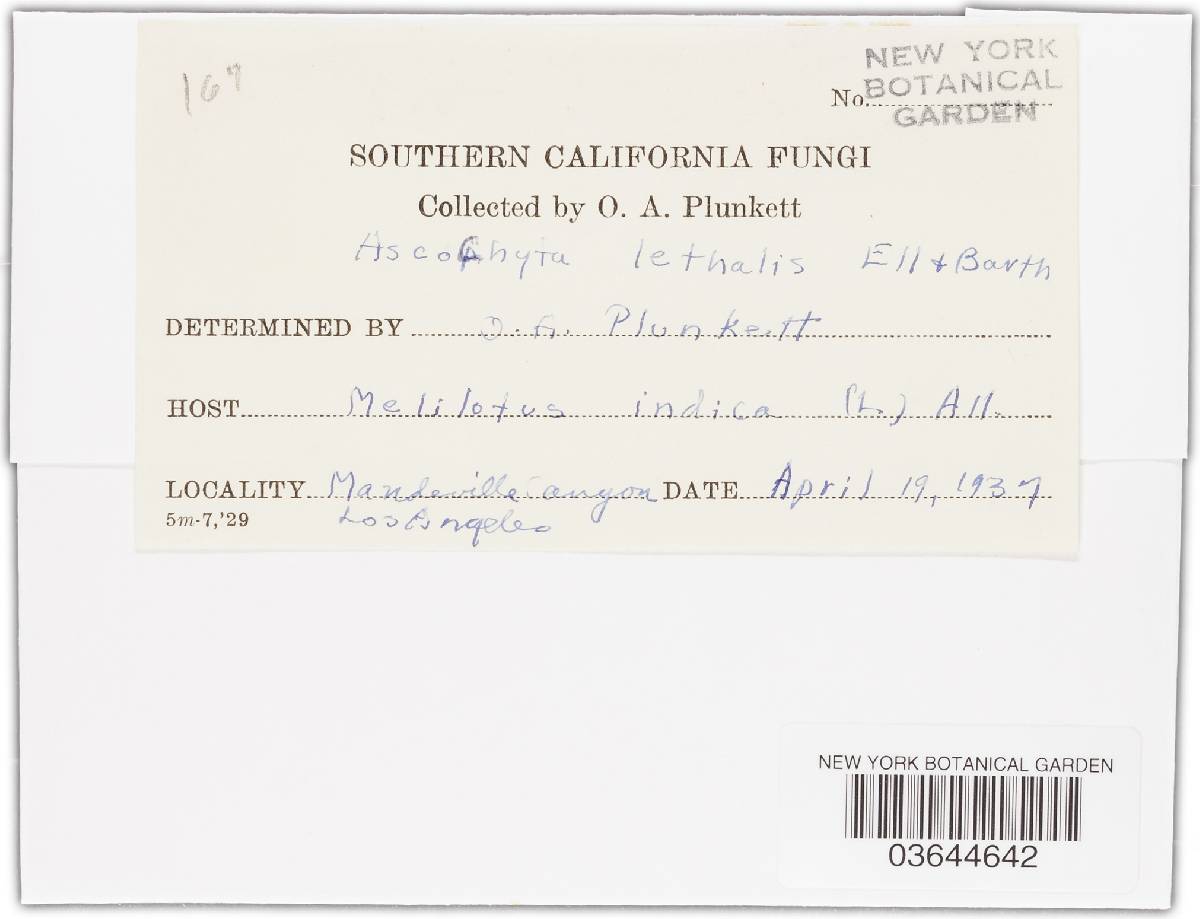 167
NEW YORK
BOTANICAL
GARDEN
No.
SOUTHERN CALIFORNIA FUNGI
Collected by O. A. Plunkett
Ascochyta lethalis Ell & Barth
DETERMINED BY O. A. Plunkett
HOST Melilotus indica (L.) All.
LOCALITY Mandeville Canyon DATE April 19, 1937
Los Angeles
5m-7,'29
NEW YORK BOTANICAL GARDEN
03644642